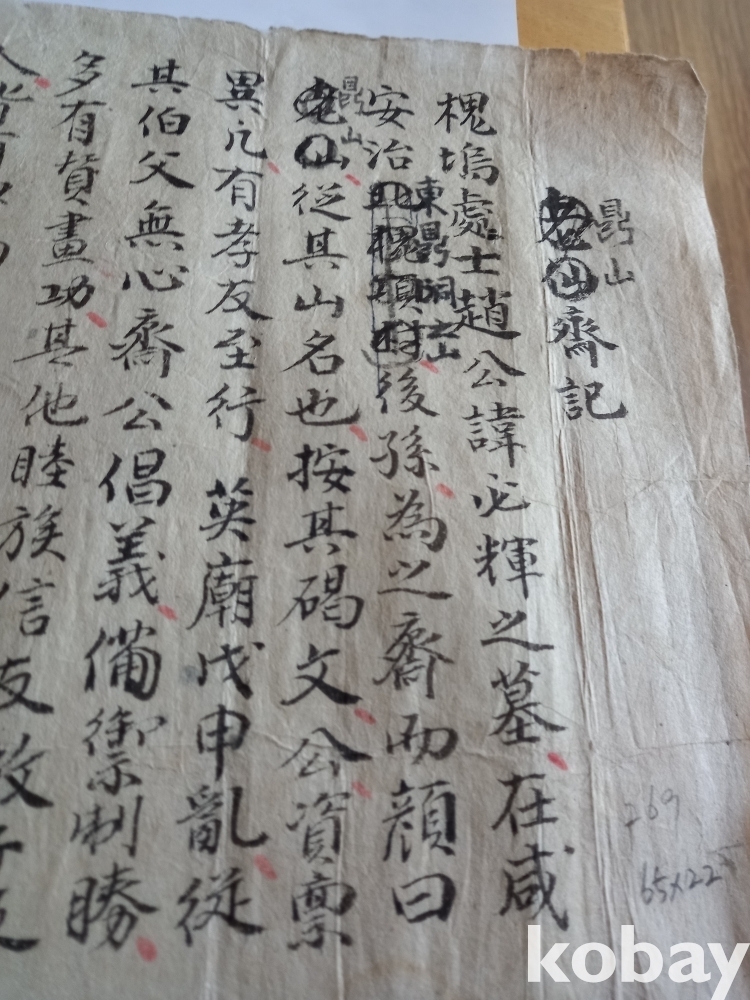 昻山
齋記
槐塢處士趙公諱必輝之墓在咸
東昻洞之山
安治後孫為之齋而顔曰
昻山
仙從其山名也按其碣文公資稟
異凡有孝友至行 英廟戊申亂從
其伯父無心齋公倡義備禦制勝
多有贊畫功其他睦族信友敎
269
65x22
kobay